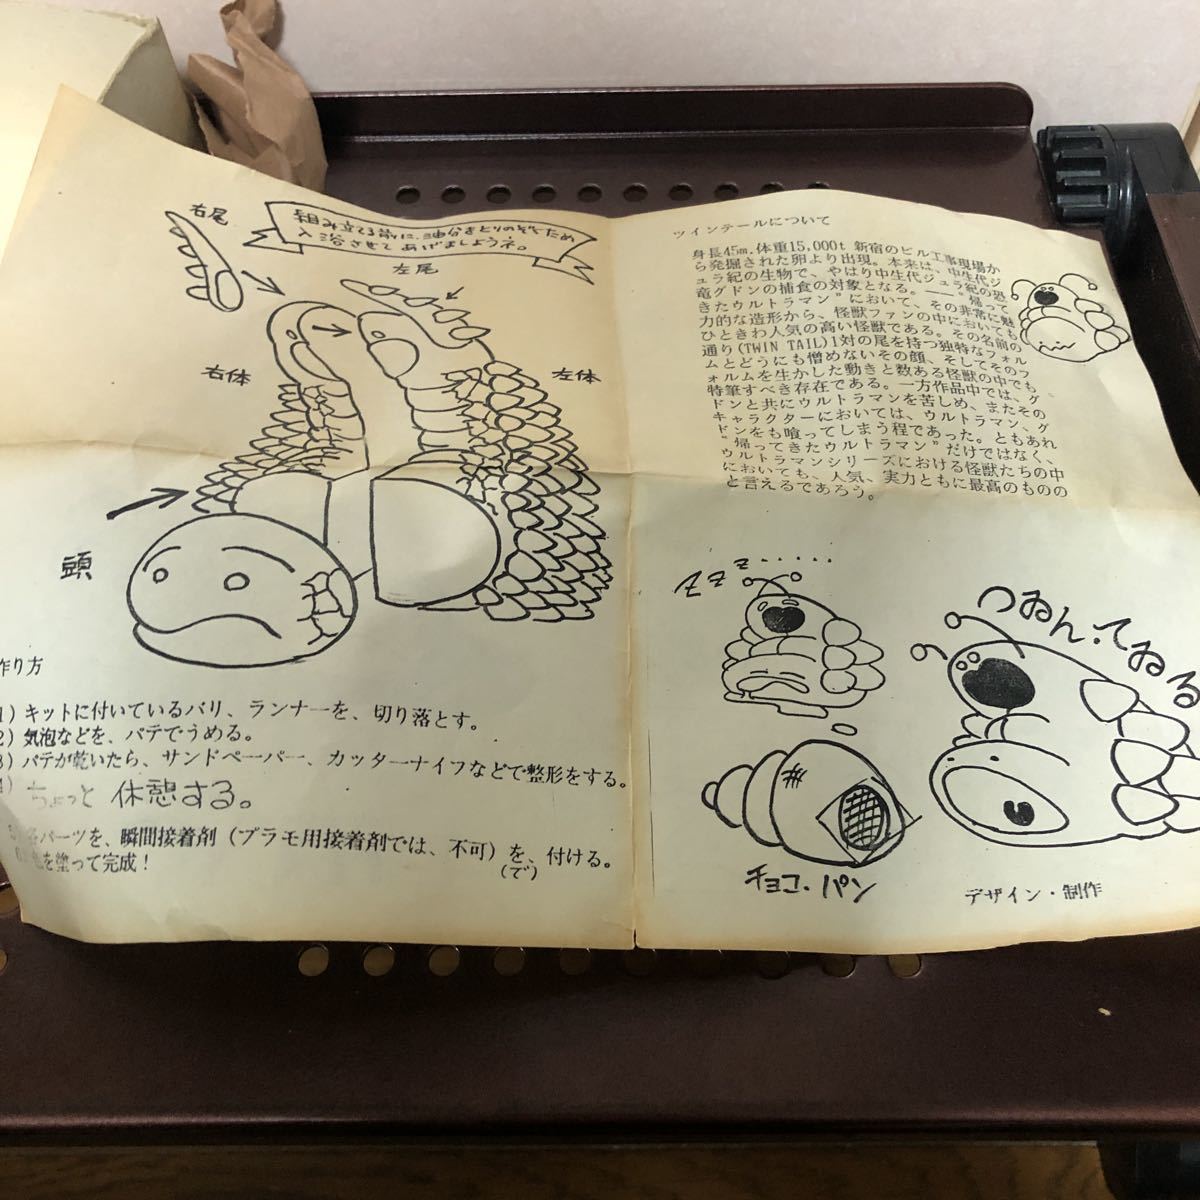 組み立てる前に、油分をとりのぞくため
入浴させてあげましょうネ。
右尾
左尾
右体
左体
頭
作り方
1) キットに付いているバリ、ランナーを、切り落とす。
2) 気泡などを、パテでうめる。
3) パテが乾いたら、サンドペーパー、カッターナイフなどで整形をする。
4) ちょっと 休憩する。
5) 各パーツを、瞬間接着剤(プラモ用接着剤では、不可)を、付ける。
(で)
を塗って完成!
ツインテールについて
身長45m.体重15,000t 新宿のビル工事現場か
ら発掘された卵より出現。本来は、中生代ジ
ュラ紀の生物で、やはり中生代ジュラ紀の恐
竜グドンの捕食の対象となる。——"帰って
きたウルトラマン"において、その非常に魅
力的な造形から、怪獣ファンの中においても
ひときわ人気の高い怪獣である。その名前の
通り(TWIN TAIL)1対の尾を持つ独特なフォル
ムとどうにも憎めないその顔、そしてそのフ
ォルムを生かした動きと数ある怪獣の中でも
特筆すべき存在である。一方作品中では、グ
ドンと共にウルトラマンを苦しめ、またその
キャラクターにおいては、ウルトラマン、グ
ドンをも喰ってしまう程であった。ともあれ
"帰ってきたウルトラマン"だけではなく、
ウルトラマンシリーズにおける怪獣たちの中
においても、人気、実力ともに最高のものの
と言えるであろう。
Zzz......
つゐん・てゐる
チョコ・パン
デザイン・制作